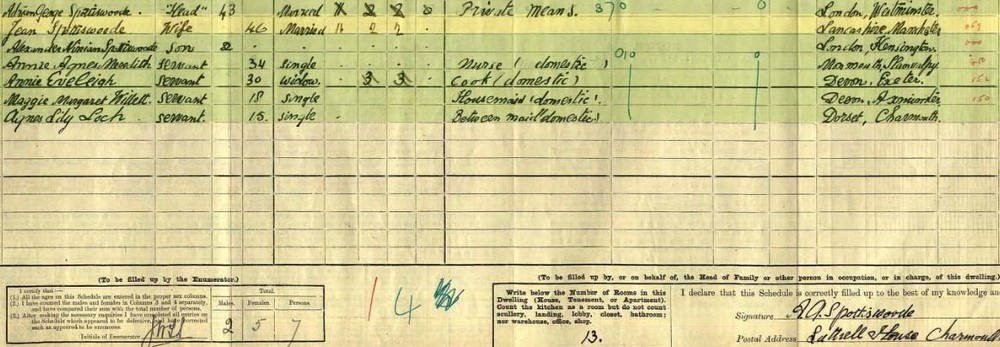 Adrian George Spottiswoode "Head" 43 Married X 2 2 0 Private Means. 370 0 London, Westminster. 000
Jean Spottiswoode Wife 46 Married 11 2 2 Lancashire, Manchester
Alexander Ninian Spottiswoode son 2 London, Kensington. 000
Annie Agnes Meredith servant 34 single Nurse (domestic)
Annie Eveleigh servant 30 widow 3 3 Cook (domestic) Devon, Exeter.
Maggie Margaret Willett servant 18 single Housemaid (domestic) Devon, Axminster 150
Agnes Lily Loch servant. 15. single Between maid (domestic) Dorset, Charmouth.
(To be filled up by the Enumerator.)
(To be filled up by, or on behalf of, the Head of Family or other person in occupation, or in charge, of this dwelling.)
I certify that:—
(1.) All the ages on this Schedule are entered in the proper sex columns.
(2.) I have counted the males and females in Columns 3 and 4 separately, and have compared their sum with the total number of persons.
(3.) After making the necessary inquiries I have completed all entries on the Schedule which appeared to be defective, and have corrected such as appeared to be erroneous.
Initials of Enumerator
Total.
Males. Females. Persons.
2 5 7
1 4
Write below the Number of Rooms in this Dwelling (House, Tenement, or Apartment). Count the kitchen as a room but do not count scullery, landing, lobby, closet, bathroom; nor warehouse, office, shop.
13.
I declare that this Schedule is correctly filled up to the best of my knowledge an
Signature A G Spottiswoode
Postal Address Luttrell House Charmouth